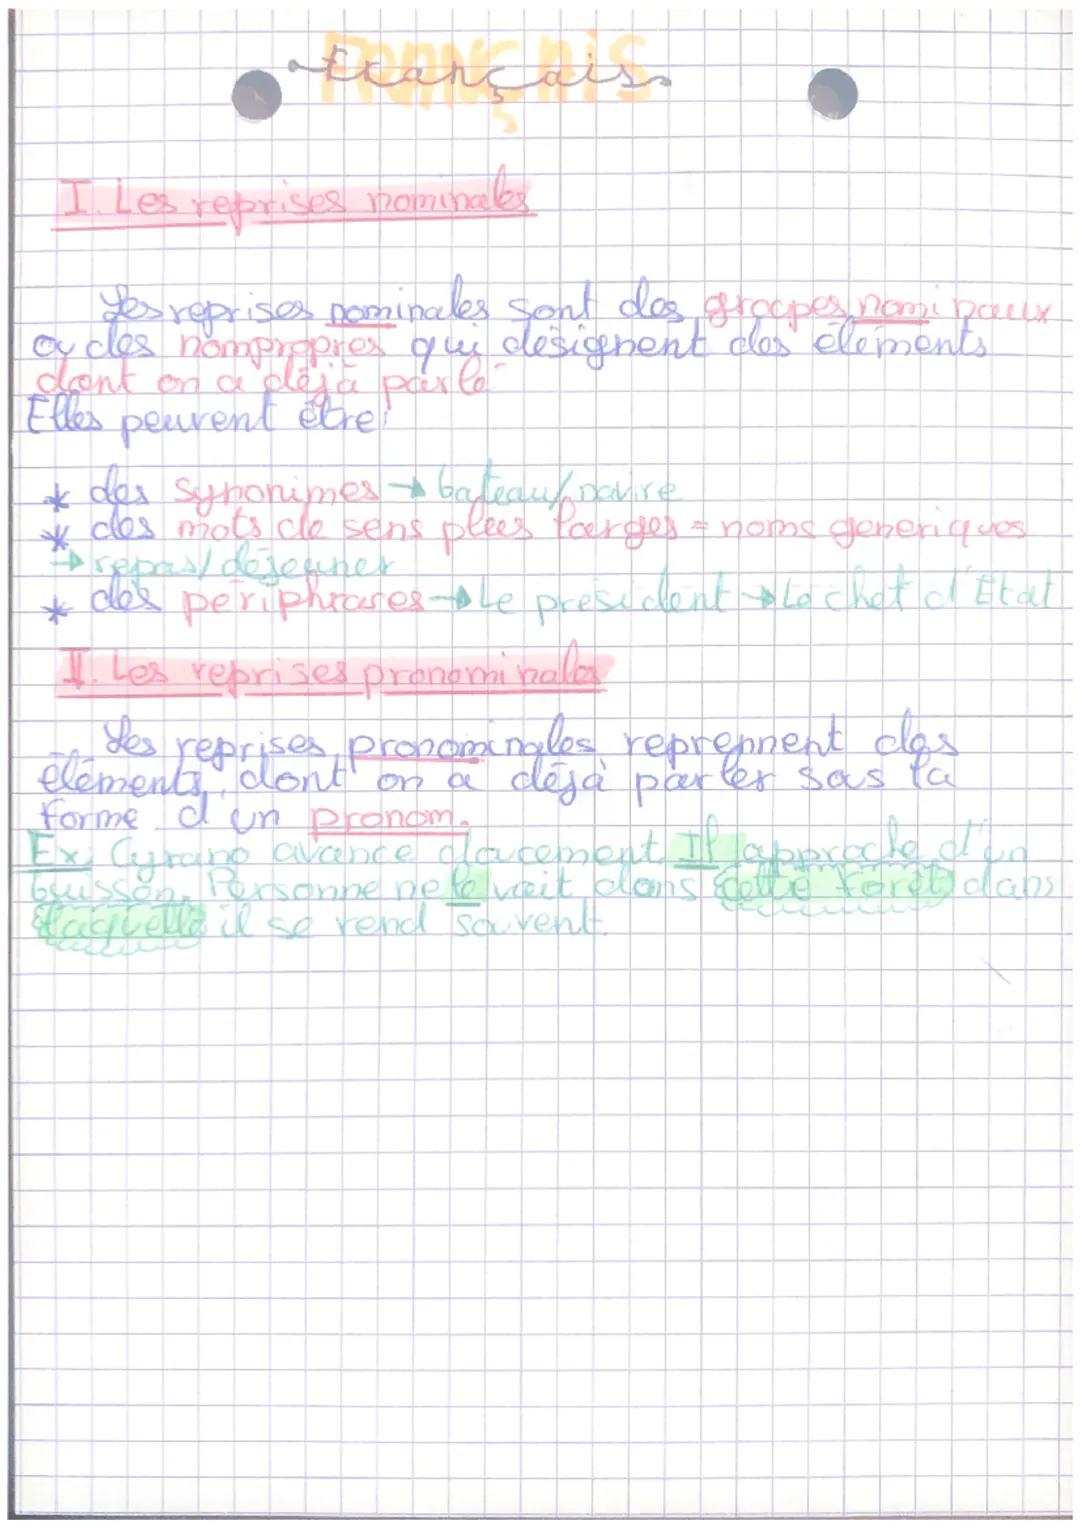 Français
I. Les reprises nominales
Les reprises nominales sont des groupes nominaux
ou des nompropres qui désignent des éléments
dont on a déjà parlé
Elles peuvent être:
* des synonimes → bateau/navire
* des mots de sens plus larges = noms generiques
→ repas/déjeuner
* des périphrases → Le président → Le chef d'Etat
II. Les reprises pronominales
Les reprises pronominales reprennent des
éléments dont on a déjà parler sous la
forme d'un pronom.
Ex: Cyrano avance doucement. Il approche d'un
buisson. Personne ne le voit dans cette forêt dans
laquelle il se rend souvent.